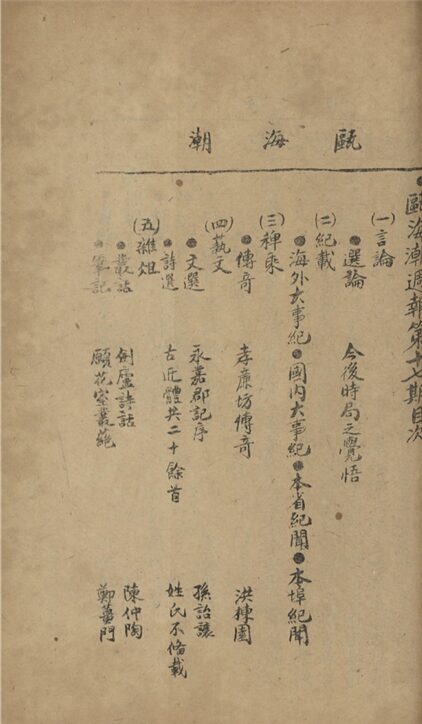 甌海潮
甌海潮週報第十七期目次
(一)言論
●選論 今後時局之覺悟
(二)紀載
●海外大事紀●國內大事紀●本省紀聞●本埠紀聞
(三)稗乘
●傳奇 孝廉坊傳奇 洪楝園
(四)藝文
●文選 永嘉郡記序 孫詒讓
●詩選 古近體共二十餘首 姓氏不備載
(五)雜俎
●叢話 劍廬詩話 陳仲陶
●筆記 花室叢 鄭薑門